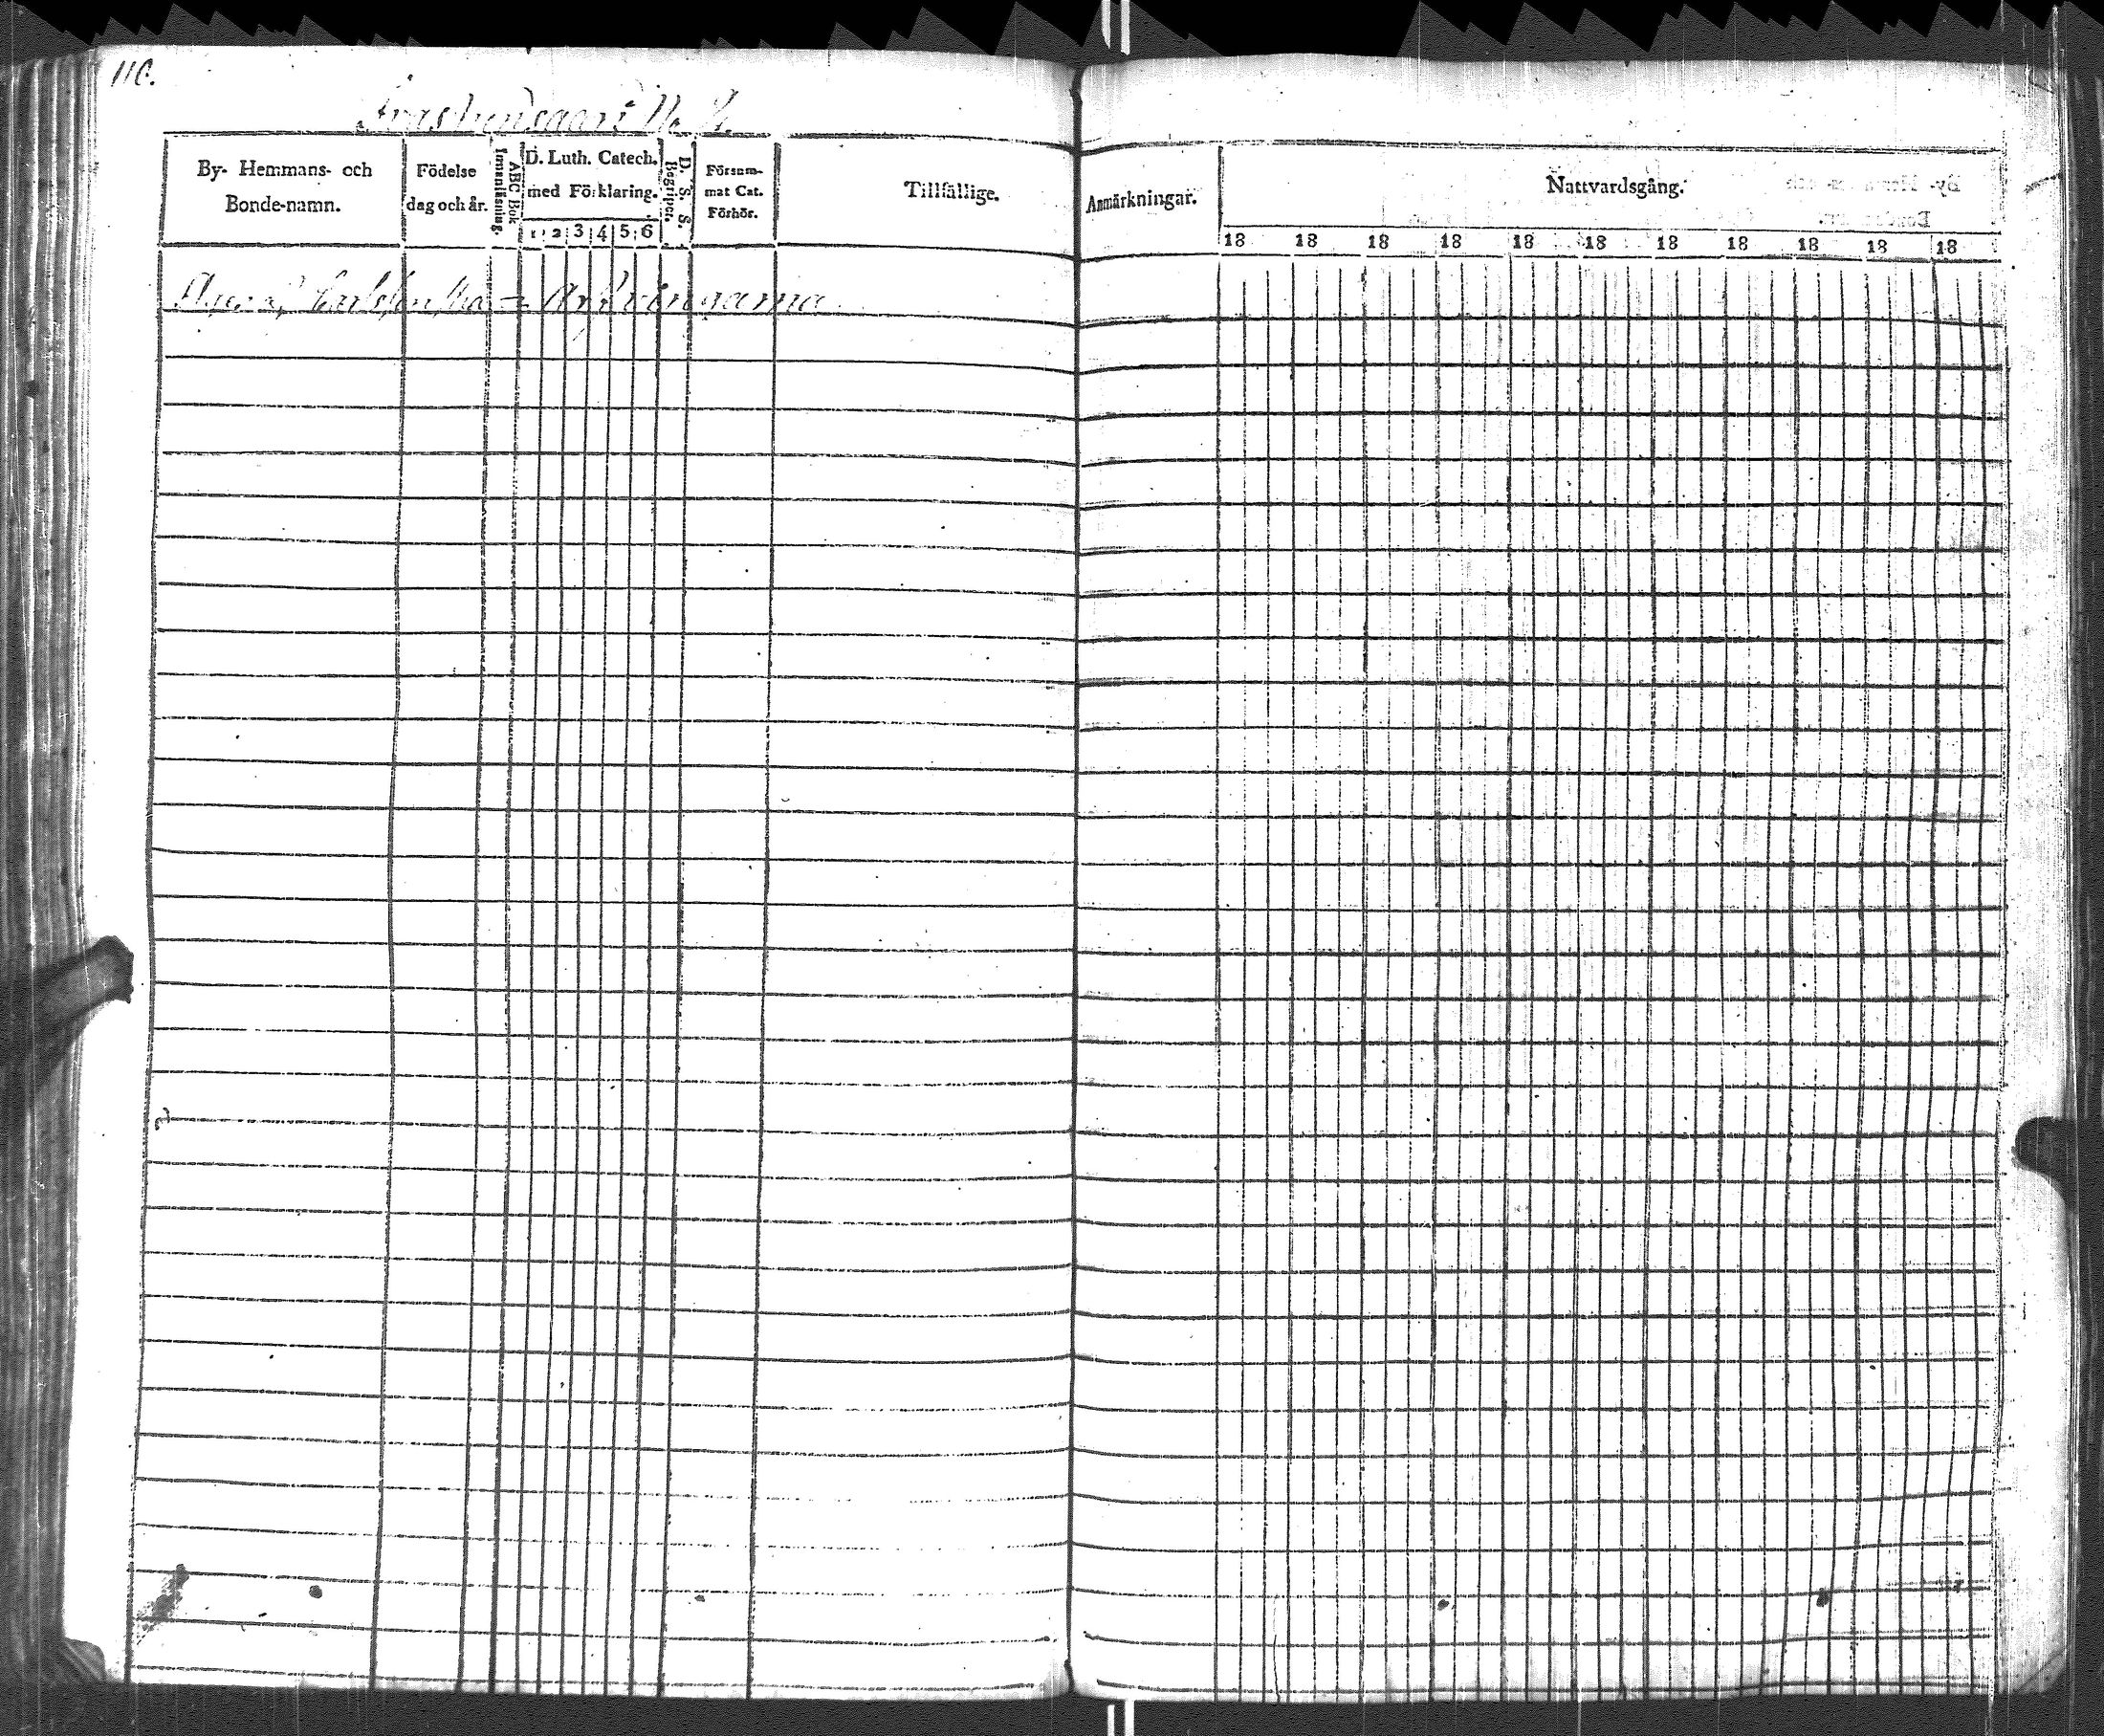 110.
By- Hemmans- och
Bonde-namn.
Födelse
dag och år.
ABC Bok
Innanläsning.
D. Luth. Catech.
med Förklaring.
1 2 3 4 5 6
D. S. S.
Begriper.
Försum-
mat Cat.
Förhör.
Tillfällige.
Anmärkningar.
Nattvardsgång.
18 18 18 18 18 18 18 18 18 18 18
Arfvingarna